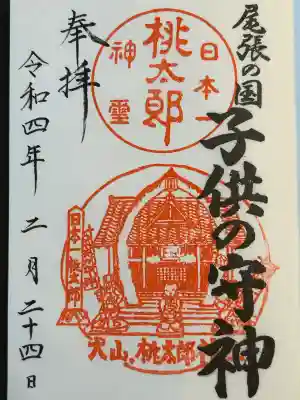 尾張の国
子供の守神
奉拝
日本一
桃太郎
神霊
日本一桃太郎
犬山.桃太郎神
令和四年 二月 二十四日